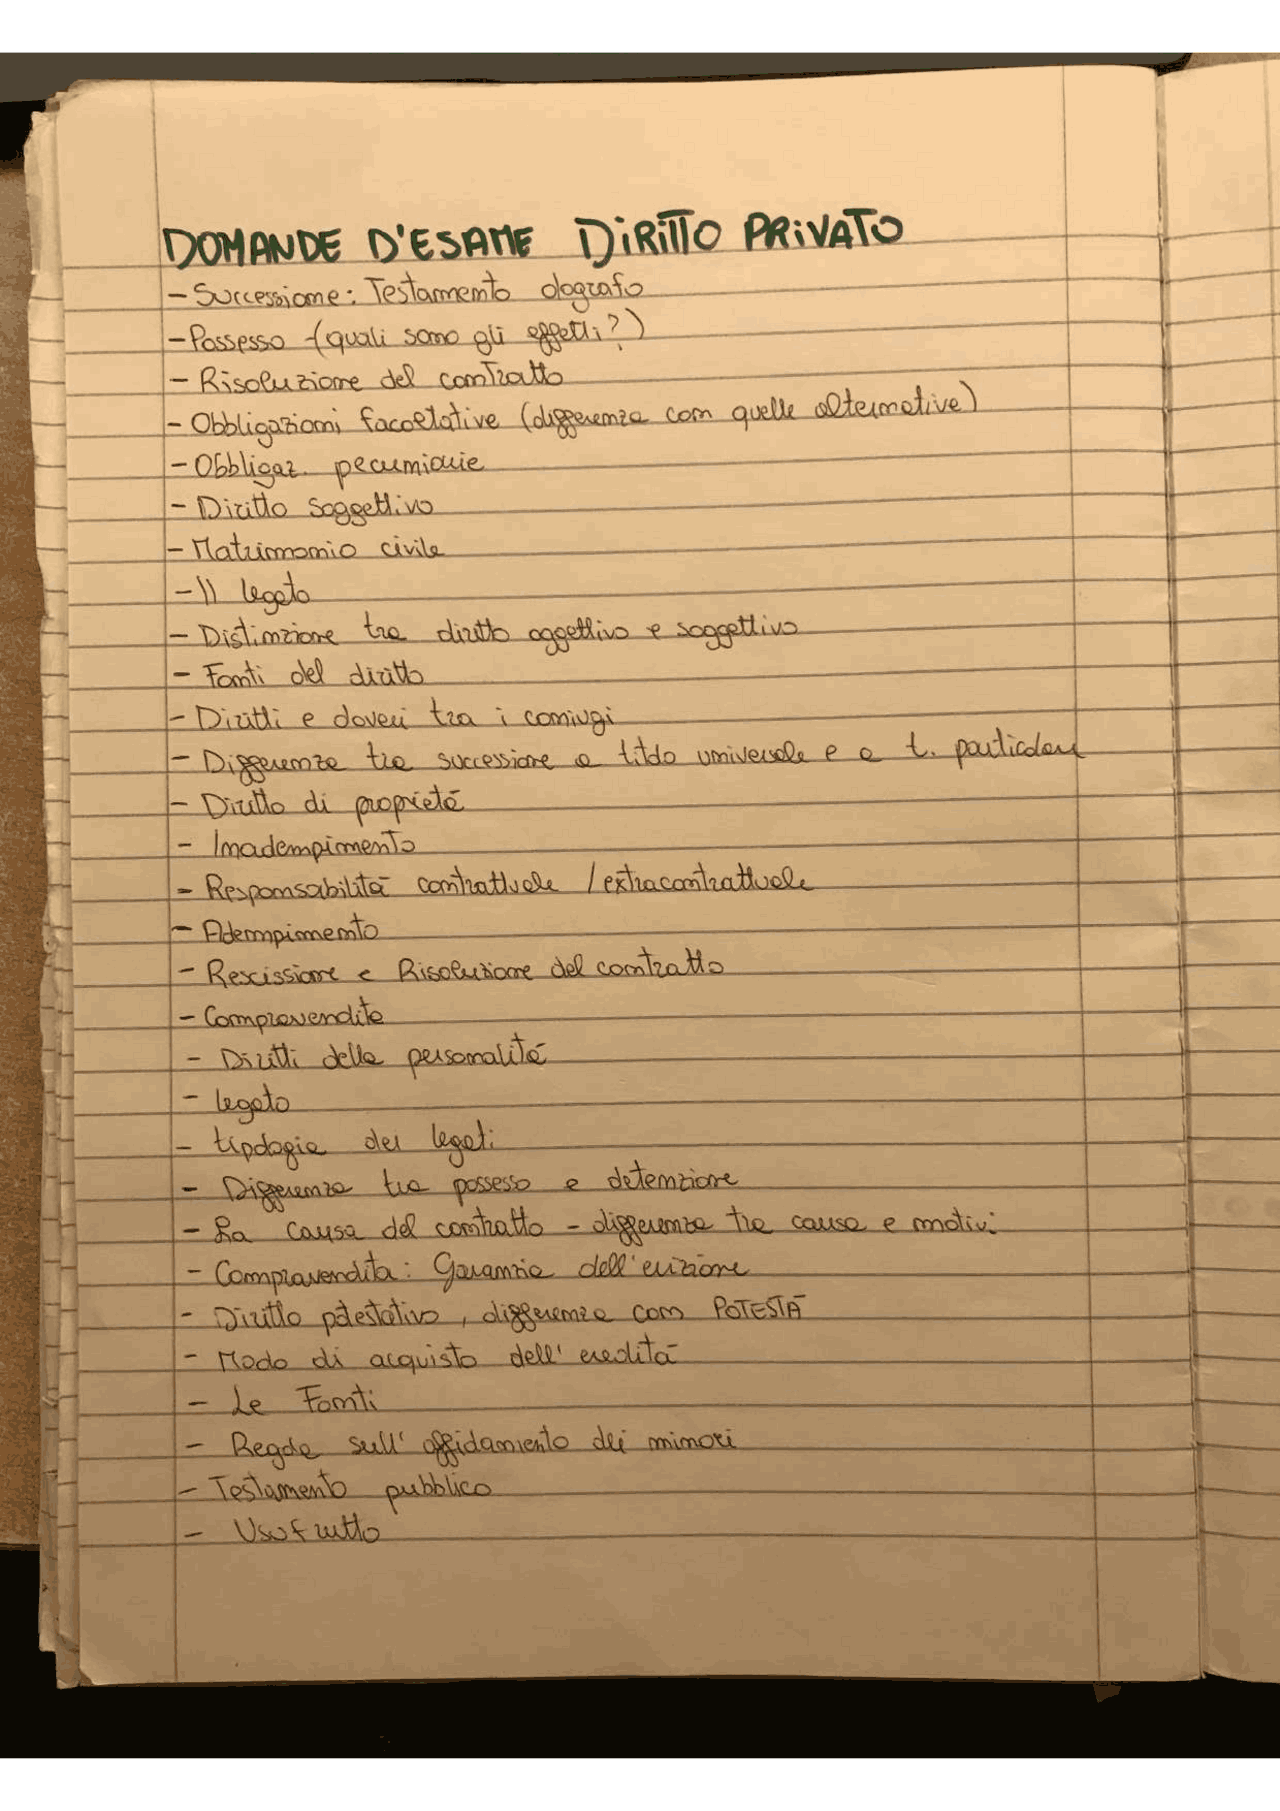 DOMANDE D'ESAME DIRITTO PRIVATO
- Successione: Testamento olografo
- Possesso - (quali sono gli effetti?)
- Risoluzione del contratto
- Obbligazioni facoltative (differenza con quelle alternative)
- Obbligaz. pecuniarie
- Diritto soggettivo
- Matrimonio civile
- Il legato
- Distinzione tra diritto oggettivo e soggettivo
- Fonti del diritto
- Diritti e doveri tra i coniugi
- Differenza tra successione a titolo universale e a t. particolare
- Diritto di proprietà
- Inadempimento
- Responsabilità contrattuale / extracontrattuale
- Adempimento
- Rescissione e Risoluzione del contratto
- Compravendita
- Diritti della personalità
- legato
- tipologia dei legati
- Differenza tra possesso e detenzione
- La causa del contratto - differenza tra causa e motivi
- Compravendita: Garanzia dell'evizione
- Diritto potestativo, differenza con POTESTÀ
- Modo di acquisto dell'eredità
- Le Fonti
- Regola sull'affidamento dei minori
- Testamento pubblico
- Usufrutto